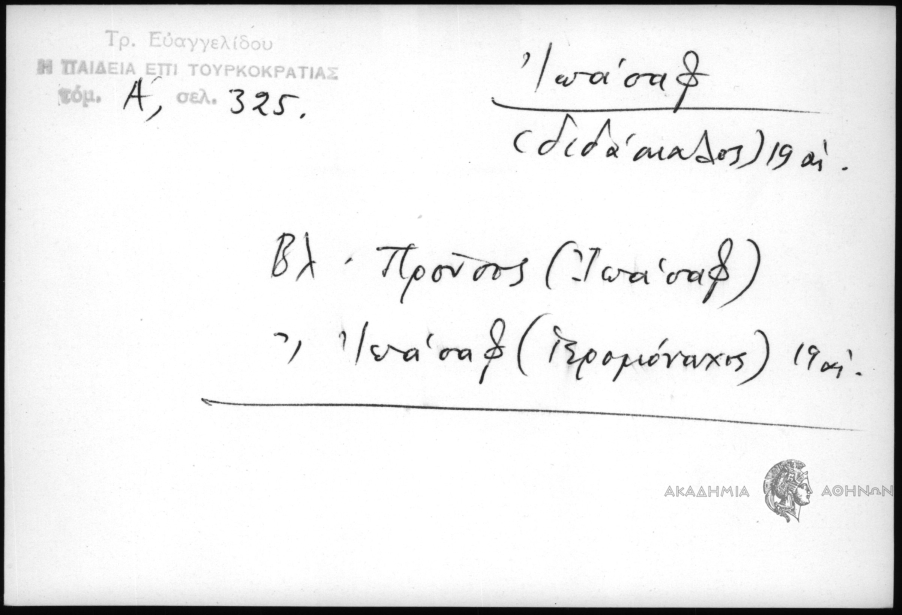 Τρ. Εὐαγγελίδου
Η ΠΑΙΔΕΙΑ ΕΠΙ ΤΟΥΡΚΟΚΡΑΤΙΑΣ
τόμ. Α, σελ. 325.
Ἰωάσαφ
(διδάσκαλος) 19 αἰ.
Βλ. Προῦσος (Ἰωάσαφ)
" Ἰωάσαφ (ἱερομόναχος) 19 αἰ.
ΑΚΑΔΗΜΙΑ ΑΘΗΝΩΝ